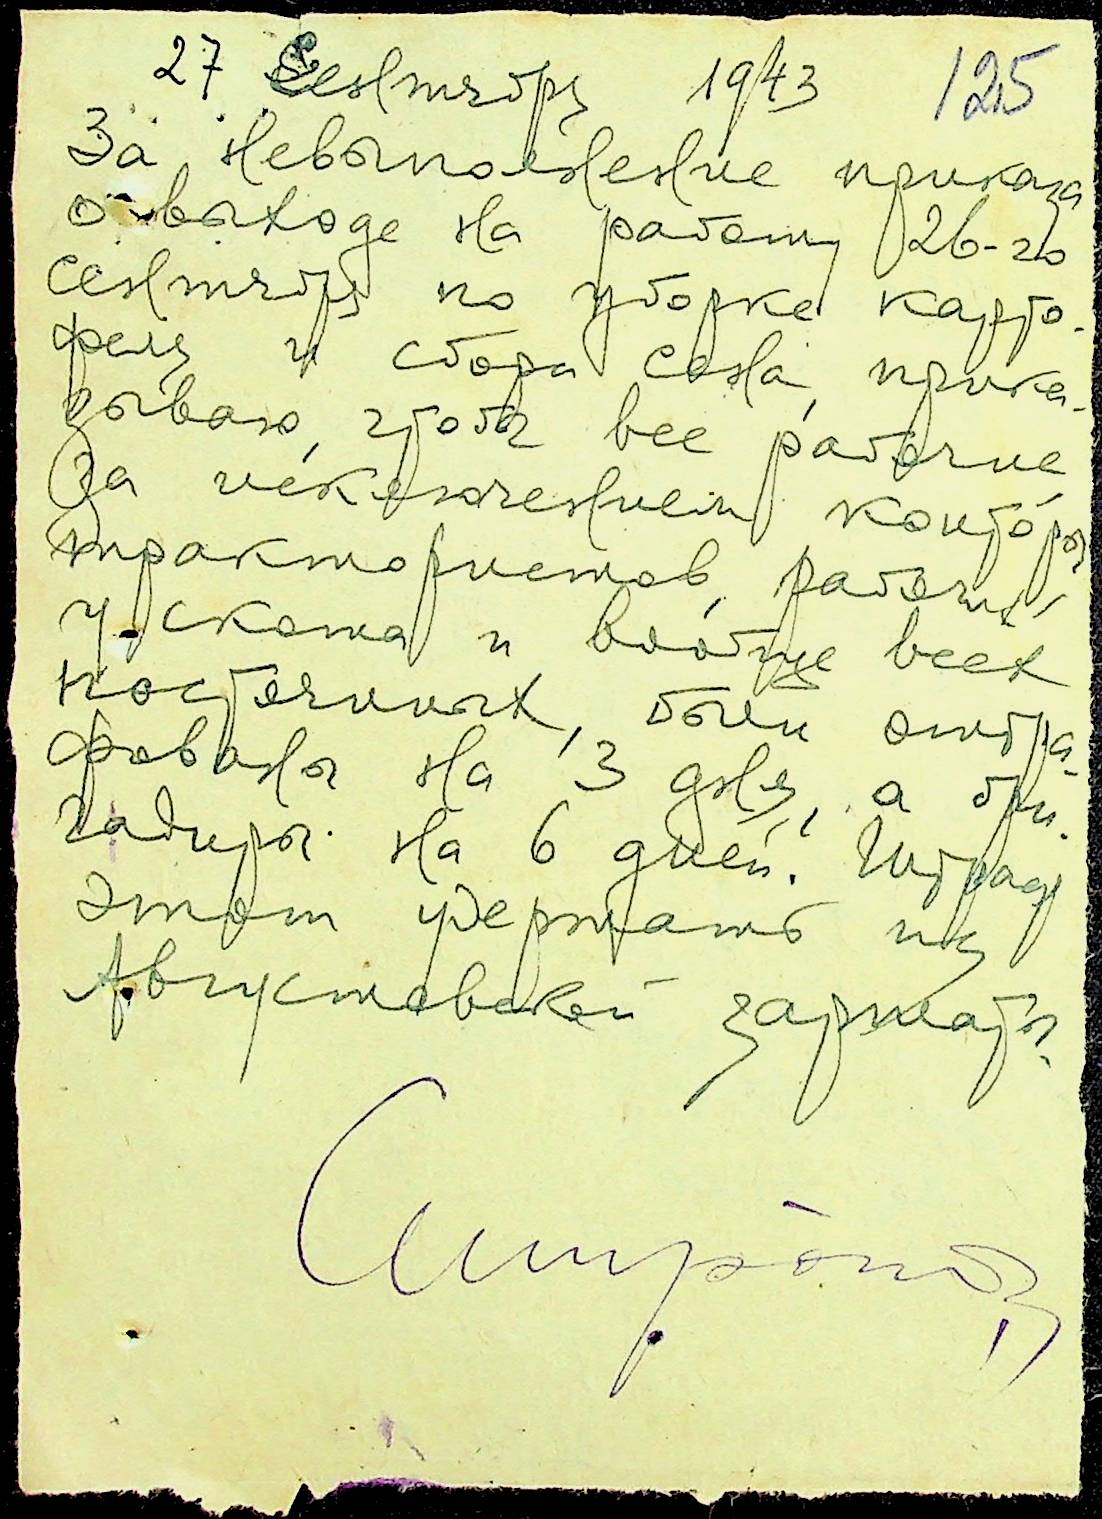 27 Сентября 1943 125
За невыполнение приказа
о выходе на работу 26-го
сентября по уборке карто-
феля и сбора сена, прика-
зываю, чтобы все рабочие
за исключением конторы
трактористов, рабочих
у скота и вообще всех
постоянных, были оштра-
фованы на 3 дня, а бри-
гадиры на 6 дней. Штраф
этот удержать из
Августовской зарплаты.